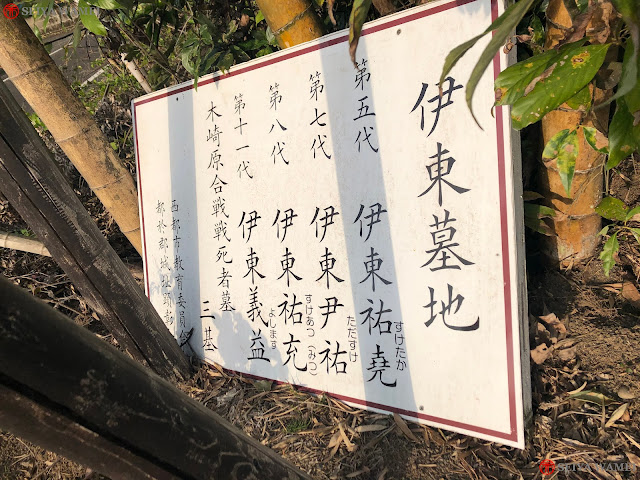 伊東墓地
第五代 伊東祐堯
すけたか
第七代 伊東尹祐
ただすけ
第八代 伊東祐充
すけあつ(みつ)
第十一代 伊東義益
よします
木崎原合戦戦死者墓 三基
西都市教育委員
都於郡城址